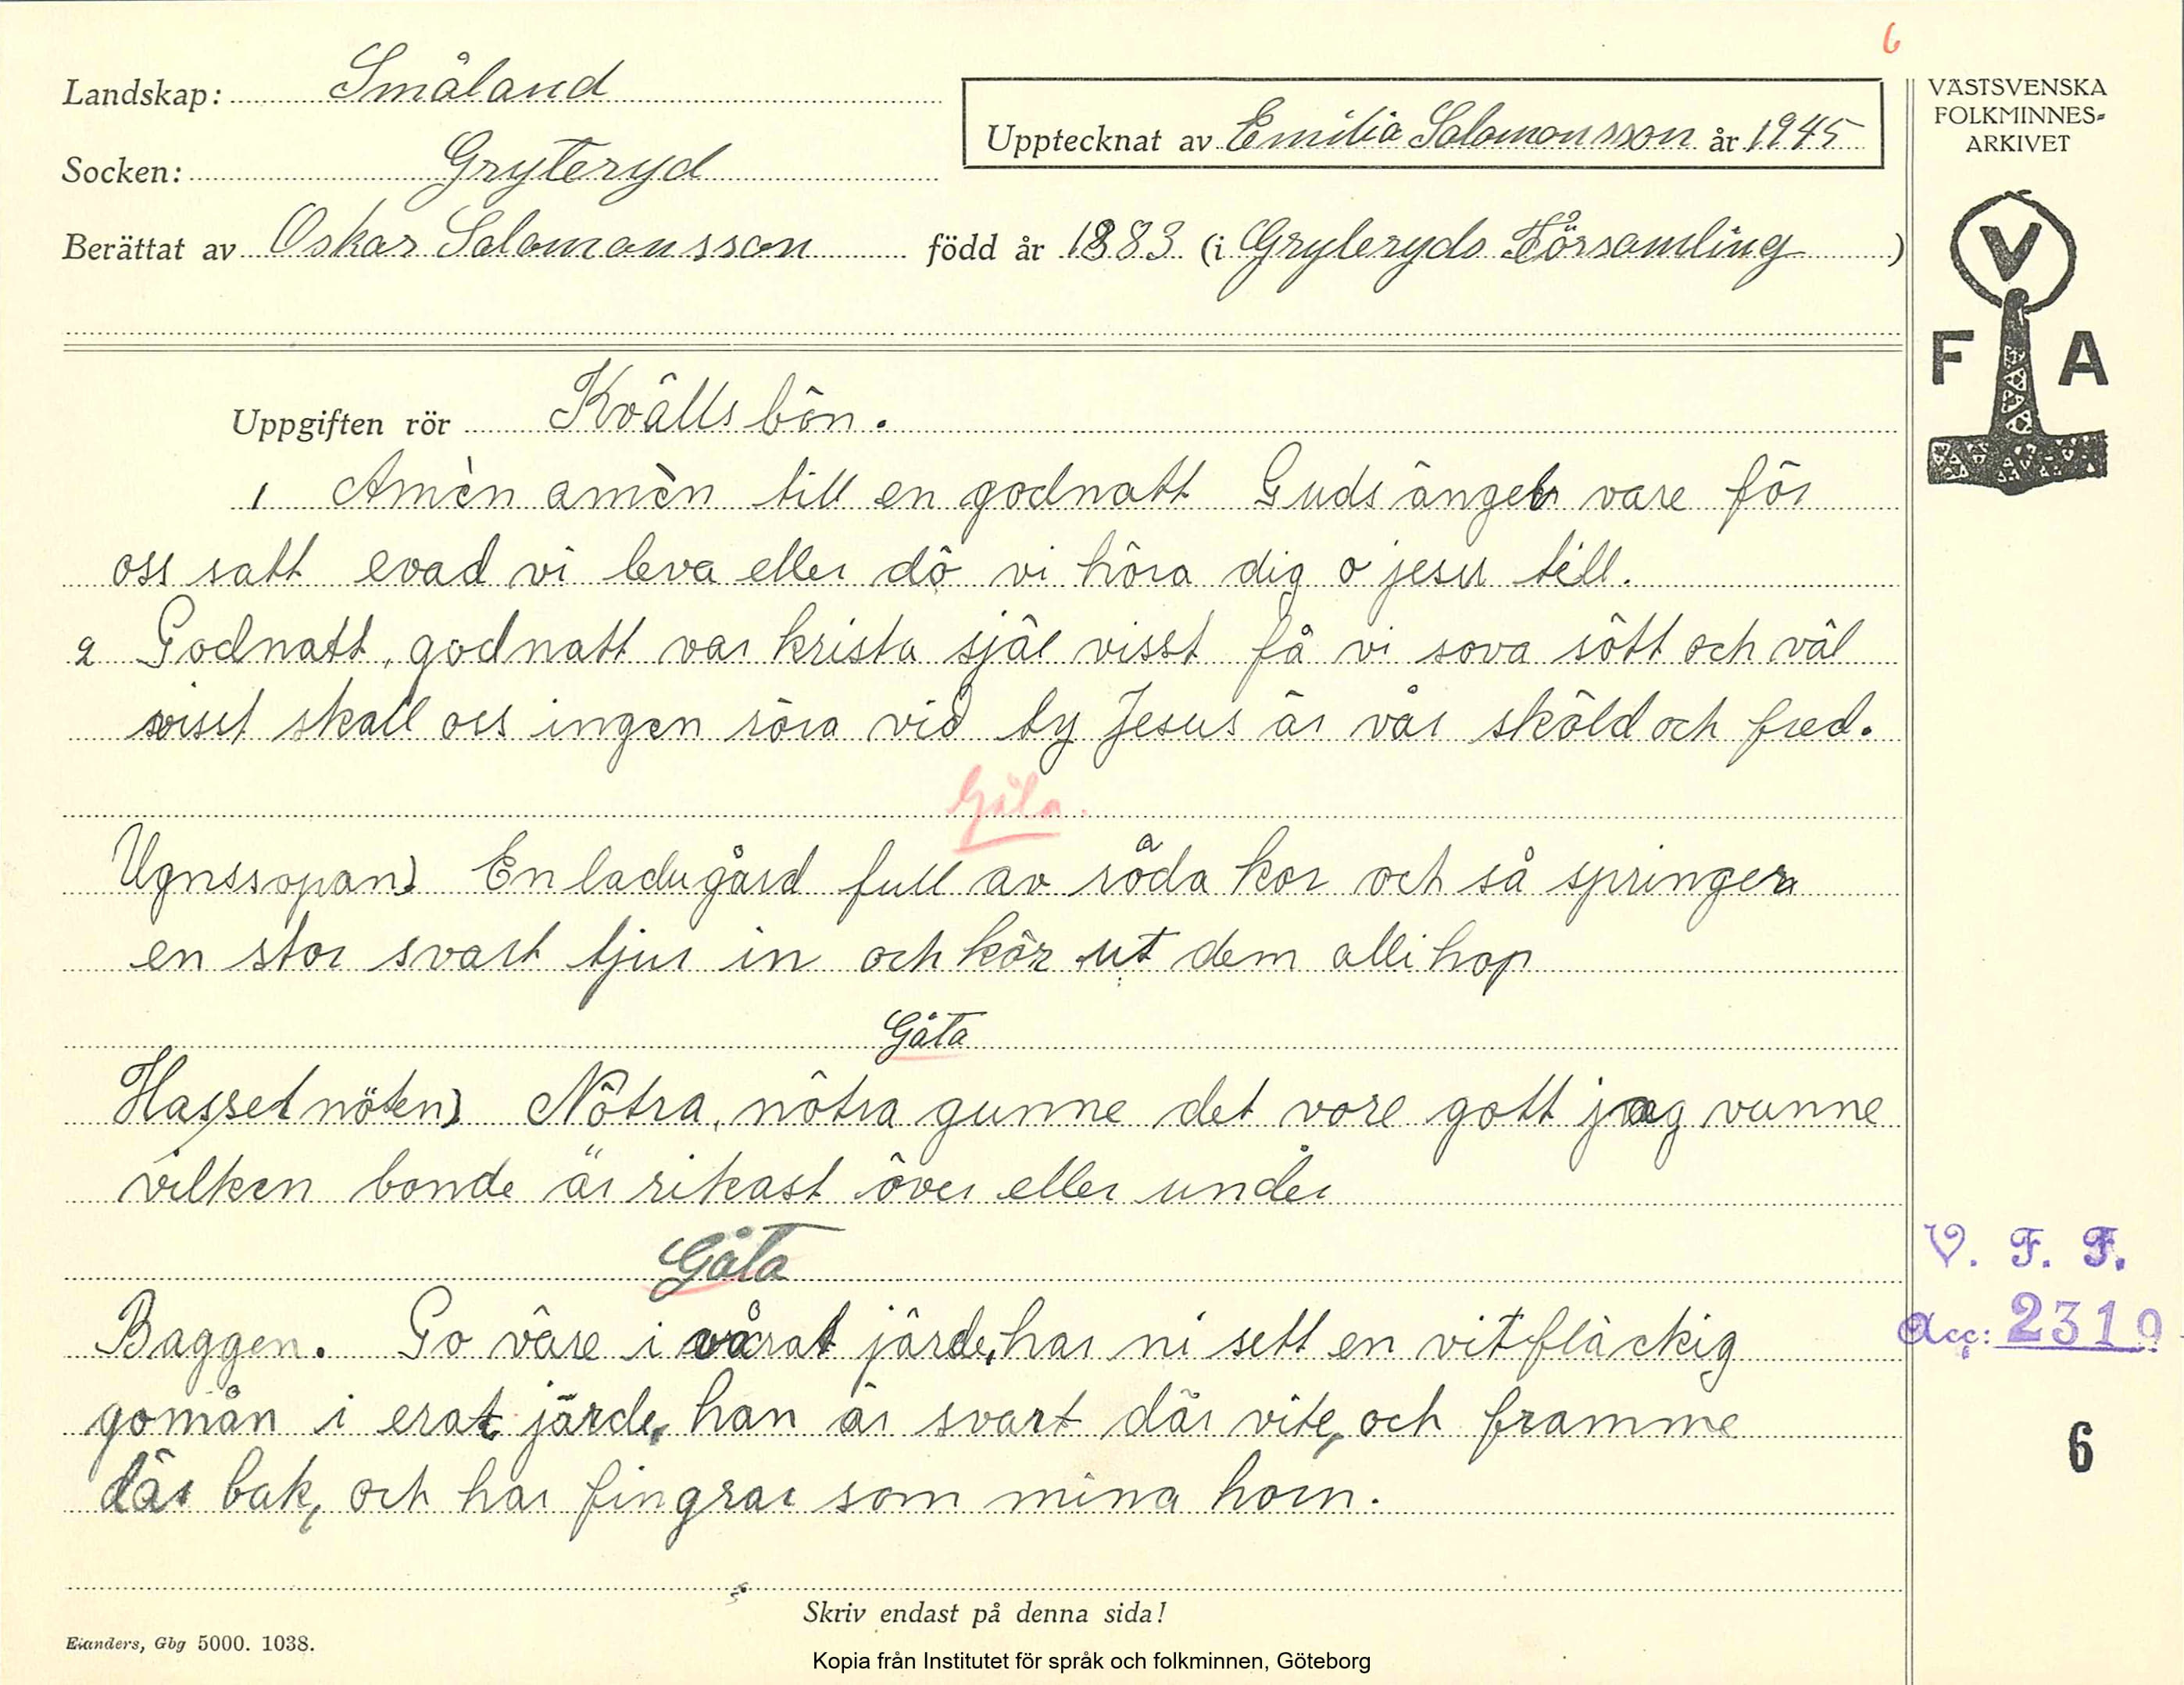 6
Landskap: Småland
Upptecknat av Emilia Salomonsson år 1945
Socken: Gryteryd
Berättat av Oskar Salomonsson född år 1883 (i Gryteryds Församling)
VÄSTSVENSKA
FOLKMINNES=
ARKIVET
V
F A
Uppgiften rör Kvällsbön.
1 Amèn amèn till en godnatt Guds ängel vare för
oss satt evad vi leva eller dö vi höra dig o jesu till.
2 Godnatt, godnatt var krista själ visst få vi sova sött och väl
visst skall oss ingen röra vid ty Jesus är vår sköld och fred.
Gåta.
Ugnssopan) En ladugård full av röda kor och så springer
en stor svart tjur in och kör ut dem allihop
Gåta
Hasselnöten) Nötra, nötra gunne det vore gott jag vunne
vilken bonde är rikast över eller under
Gåta
Baggen. Go väre i vårat järde, har ni sett en vitfläckig
gomån i erat järde, han är svart där vite, och framme
där bak, och har fingrar som mina horn.
V. F. F.
Acc: 2310
6
Skriv endast på denna sida!
Elanders, Gbg 5000. 1038.
Kopia från Institutet för språk och folkminnen, Göteborg